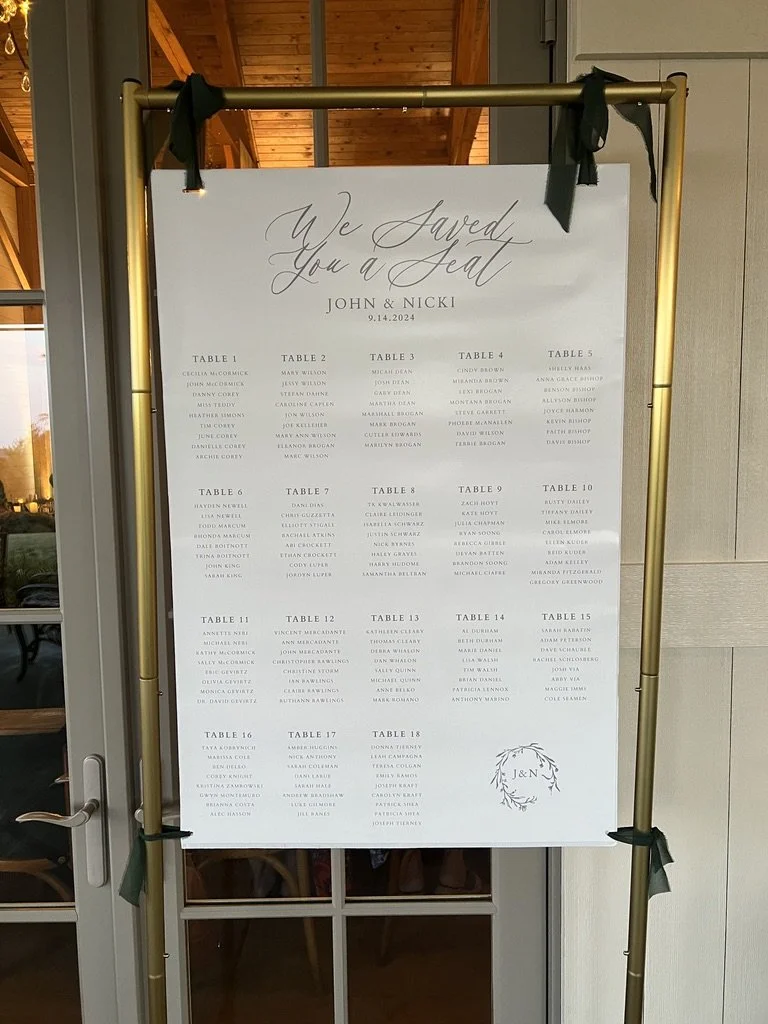 We Saved
You a Seat
JOHN & NICKI
9.14.2024
TABLE 1
CECILIA McCORMICK
JOHN McCORMICK
DANNY COREY
MISS TEDDY
HEATHER SIMONS
TIM COREY
JUNE COREY
DANIELLE COREY
ARCHIE COREY
TABLE 2
MARY WILSON
JESSY WILSON
STEFAN DAHNE
CAROLINE CAPLEN
JON WILSON
JOE KELLEHER
MARY ANN WILSON
ELEANOR BROGAN
MARC WILSON
TABLE 3
MICAH DEAN
JOSH DEAN
GABY DEAN
MARTHA DEAN
MARSHALL BROGAN
MARK BROGAN
CUTLER EDWARDS
MARILYN BROGAN
TABLE 4
CINDY BROWN
MIRANDA BROWN
LEXI BROGAN
MONTANA BROGAN
STEVE GARRETT
PHOEBE McNALLEN
DAVID WILSON
FERRIE BROGAN
TABLE 5
SHELLY HAAS
ANNA GRACE BISHOP
BENSON BISHOP
ALLYSON BISHOP
JOYCE HARMON
KEVIN BISHOP
FAITH BISHOP
DAVIS BISHOP
TABLE 6
HAYDEN NEWELL
LISA NEWELL
TODD MARCUM
RHONDA MARCUM
DALE BOITNOTT
TRINA BOITNOTT
JOHN KING
SARAH KING
TABLE 7
DANI DIAS
CHRIS GUZZETTA
ELLIOTT STIGALL
RACHAEL ATKINS
ARI CROCKETT
ETHAN CROCKETT
CODY LUPER
JORDYN LUPER
TABLE 8
TK KWALWASSER
CLAIRE LEIDINGER
ISABELLA SCHWARZ
JUSTIN SCHWARZ
NICK BYRNES
HALEY GRAVES
HARRY HUDOME
SAMANTHA BELTRAN
TABLE 9
ZACH HOYT
KATE HOYT
JULIA CHAPMAN
RYAN SOONG
REBECCA GIBBLE
DEVAN BATTEN
BRANDON SOONG
MICHAEL CIAFRE
TABLE 10
RUSTY DAILEY
TIFFANY DAILEY
MIKE ELMORE
CAROL ELMORE
ELLEN KUDER
REID KUDER
ADAM KELLEY
MIRANDA FITZGERALD
GREGORY GREENWOOD
TABLE 11
ANNETTE NERI
MICHAEL NERI
KATHY McCORMICK
SALLY McCORMICK
ERIC GEVIRTZ
OLIVIA GEVIRTZ
MONICA GEVIRTZ
DR. DAVID GEVIRTZ
TABLE 12
VINCENT MERCADANTE
ANN MERCADANTE
JOHN MERCADANTE
CHRISTOPHER RAWLINGS
CHRISTINE STORM
IAN RAWLINGS
CLAIRE RAWLINGS
RUTHANN RAWLINGS
TABLE 13
KATHLEEN CLEARY
THOMAS CLEARY
DEBRA WHALON
DAN WHALON
SALLY QUINN
MICHAEL QUINN
ANNE BELKO
MARK ROMANO
TABLE 14
AL DURHAM
BETH DURHAM
MARIE DANIEL
LISA WALSH
TIM WALSH
BRIAN DANIEL
PATRICIA LENNOX
ANTHONY MARINO
TABLE 15
SARAH RABATIN
ADAM PETERSON
DAVE SCHAUBLE
RACHEL SCHLOSBERG
JOSH VIA
ABBY VIA
MAGGIE IMMS
COLE SEAMEN
TABLE 16
TAYA KOBRYNICH
MARISSA COLE
BEN DELEO
COREY KNIGHT
KRISTINA ZAMBROWSKI
GWYN MONTEMURO
BRIANNA COSTA
ALEC HASSON
TABLE 17
AMBER HUGGINS
NICK ANTHONY
SARAH COLEMAN
DANI LARUE
SARAH HALE
ANDREW BRADSHAW
LUKE GILMORE
JILL BANES
TABLE 18
DONNA TIERNEY
LEAH CAMPAGNA
TERESA COLGAN
EMILY RAMOS
JOSEPH KRAFT
CAROLYN KRAFT
PATRICK SHEA
PATRICIA SHEA
JOSEPH TIERNEY
J&N